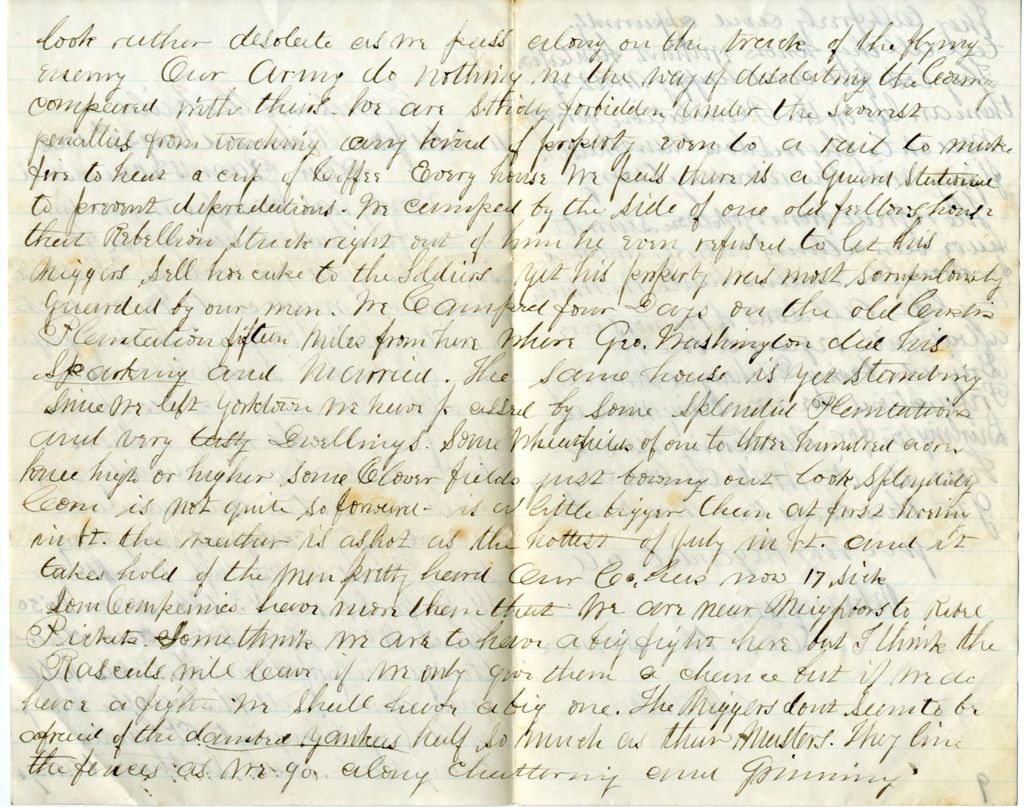 look rather desolate as we pass along on the track of the flying
enemy Our Army do nothing in the way of disolating the
compared with theirs. We are stricly forbidden under the severest
penalties from touching any kind of property even to a rail to make
fire to heat a cup of Coffee Every house we pass there is a Guard stationed
to prevent depredations. We camped by the side of one old fellows house
that Rebellion stuck right out of him he even refused to let his
Niggers sell hoecake to the Soldiers yet his property was most
Guarded by our men. We Camped four Days on the old Custis
Plantation fifteen miles from here where Geo. Washington did his
Sparking and Married. The same house is yet standing
Since We left Yorktown we have passed by some splendid Plantations
and very tasty Dwellings. Some Wheatfields of one to three hundred acres
knee high or higher some Clover fields just bowing out look splendidly
Corn is not quite so forward - is a little bigger than at first hoeing
in Vt. the weather is as hot as the hottest of July in Vt. and it
takes hold of the men pretty heard Our Co. has now 17, sick
Som Companies have more then that We are near Neighbors to Rebel
Pickets Some think we are to have a big fight here but I think the
Rascals will leave if we only give them a chance but if we do
have a fight we shall have a big one. The Niggers dont seem to be
afraid of the damned Yankees half so much as their Masters. They line
the fences as we go along chattering and Grinning